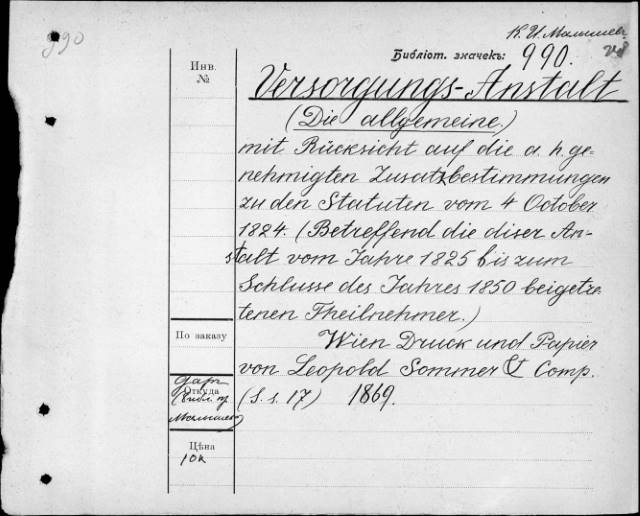 990
К. И. Малышев
Библіот. значекъ: 990.
Инв.
№
Versorgungs-Anstalt
(Die allgemeine)
mit Rücksicht auf die a. h. ge-
nehmigten Zusatzbestimmungen
zu den Statuten vom 4 October
1824. (Betreffend die diser An-
stalt vom Jahre 1825 bis zum
Schlusse des Jahres 1850 beigetre-
tenen Theilnehmer.)
По заказу
Wien Druck und Papier
von Leopold Sommer & Comp.
Откуда
даръ
библ. пр.
Малышева
(S. s. 17) 1869.
Цѣна
10к